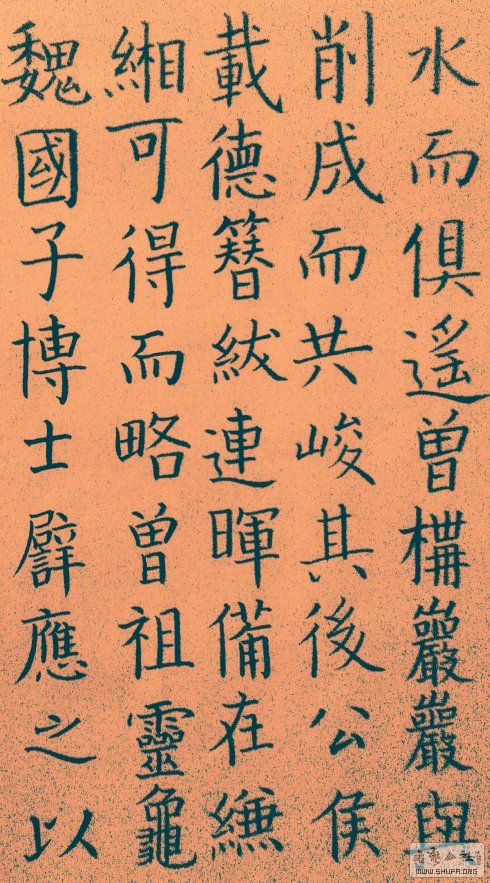 水而俱遙曾構巖巖與
削成而共峻其後公侯
載德簪紱連暉俻在縑
緗可得而略曾祖靈龜
魏國子博士辟應之以
WWW.SHUFA.ORG